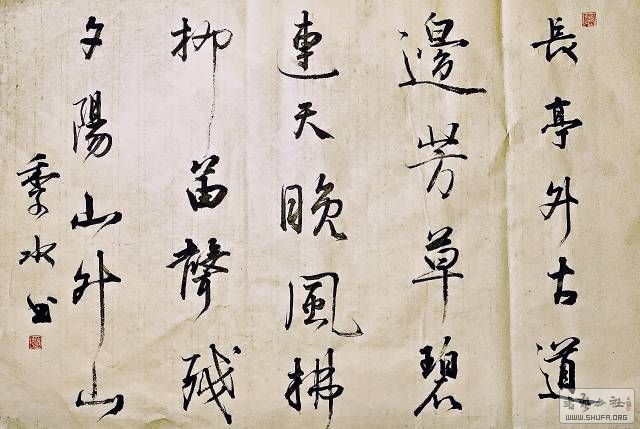 長亭外古道
邊芳草碧
連天晚風拂
柳笛聲殘
夕陽山外山
季水书
WWW.SHUFA.ORG